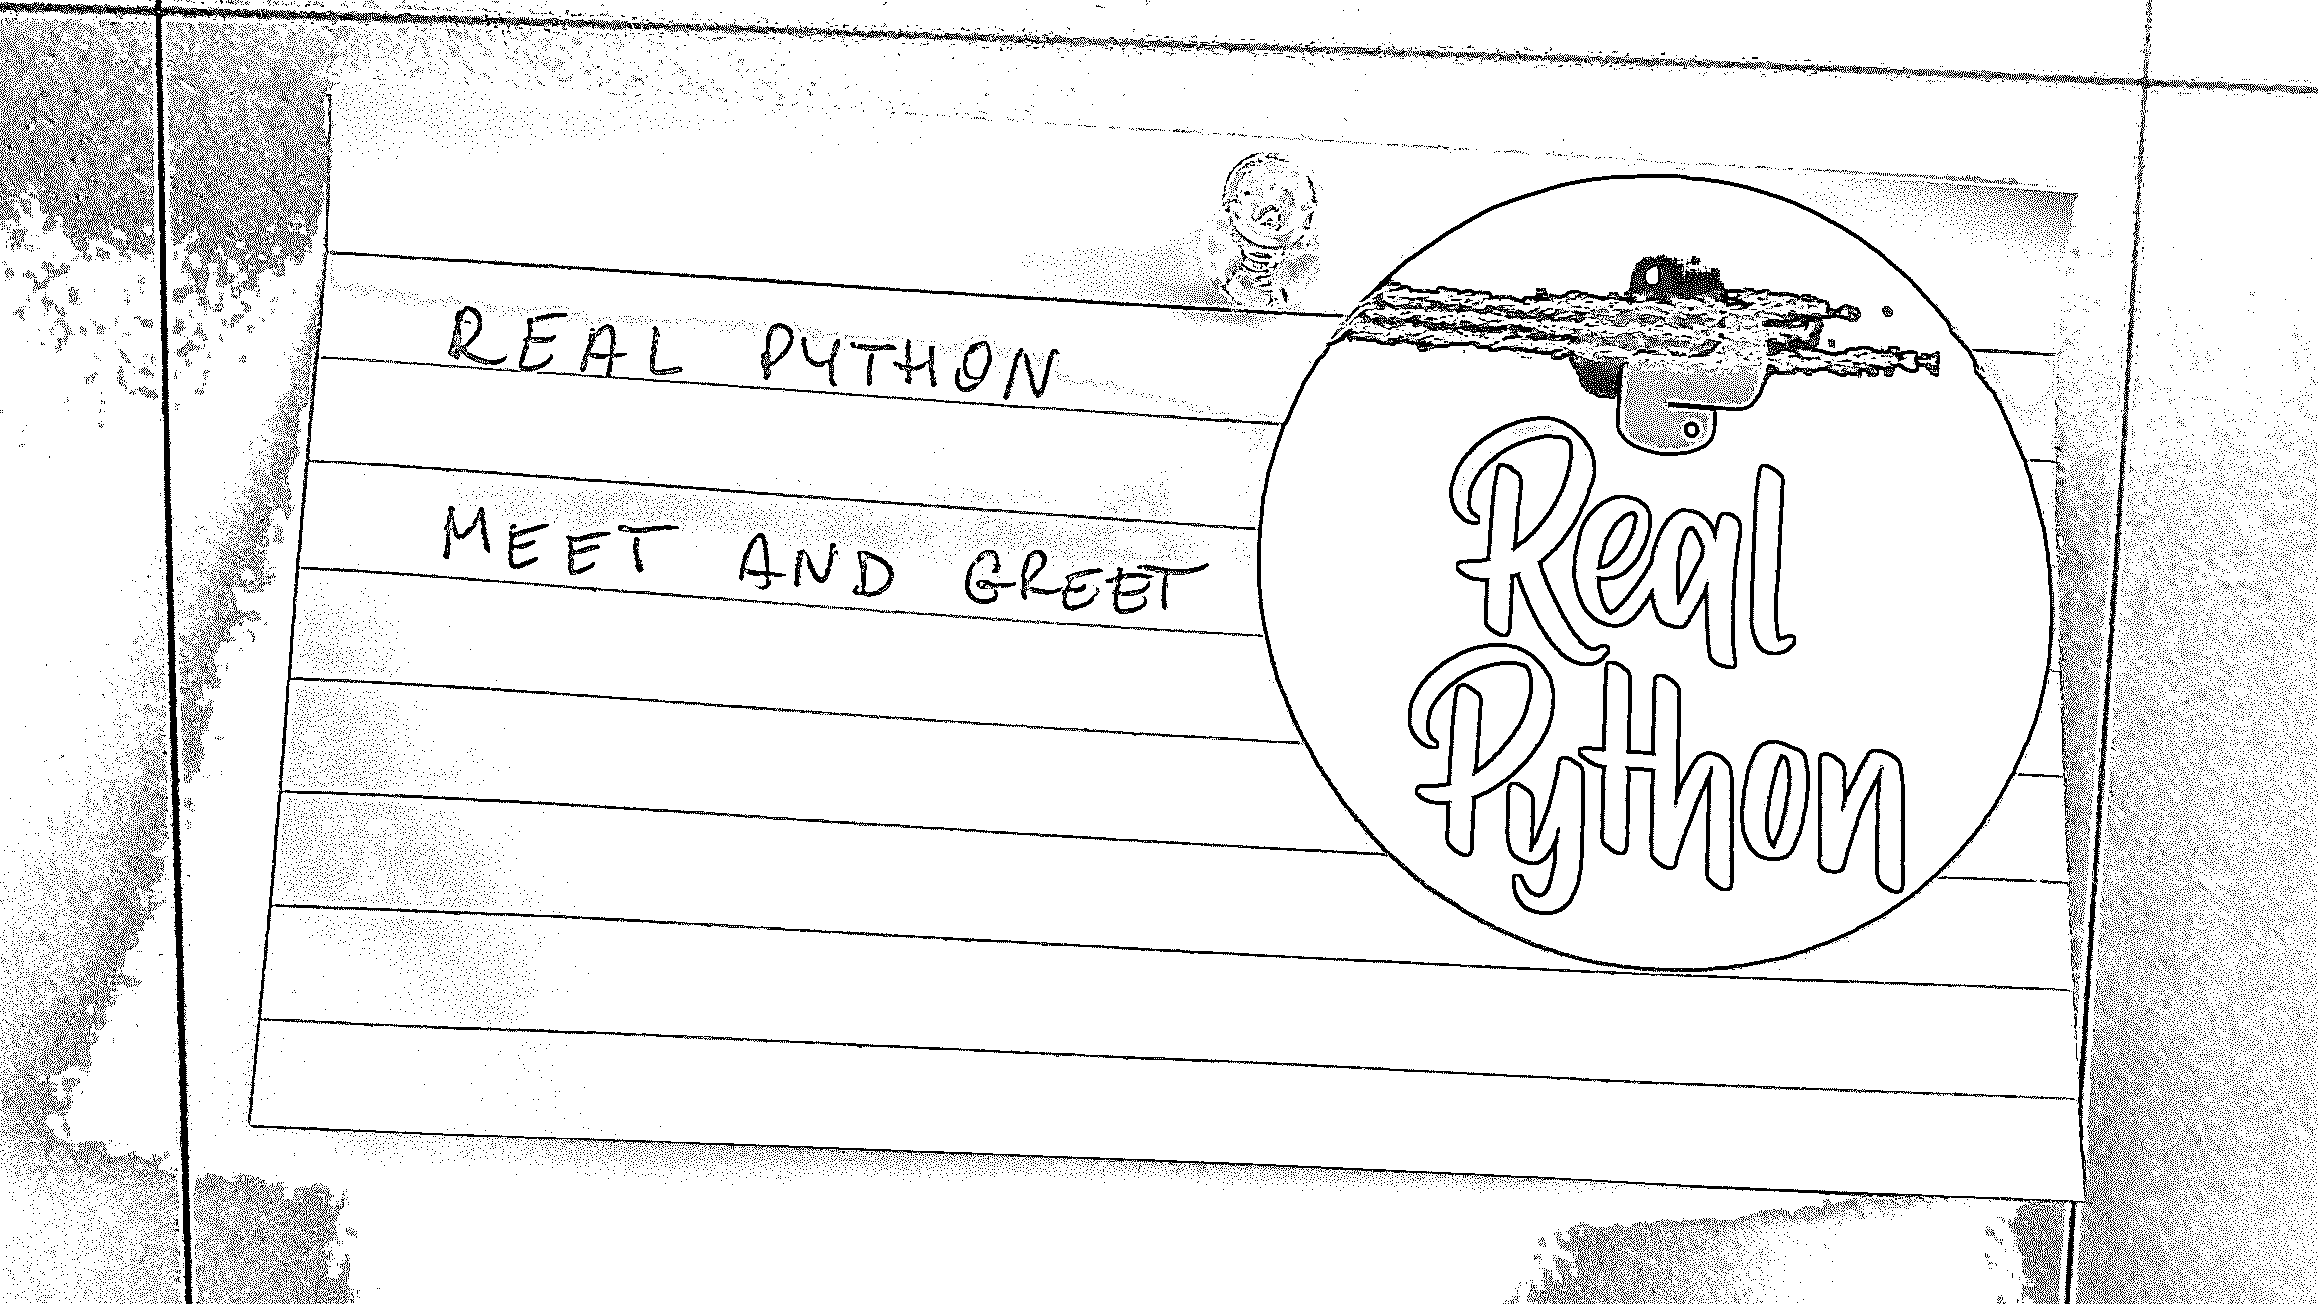 REAL PYTHON
MEET AND GREET
Real
Python